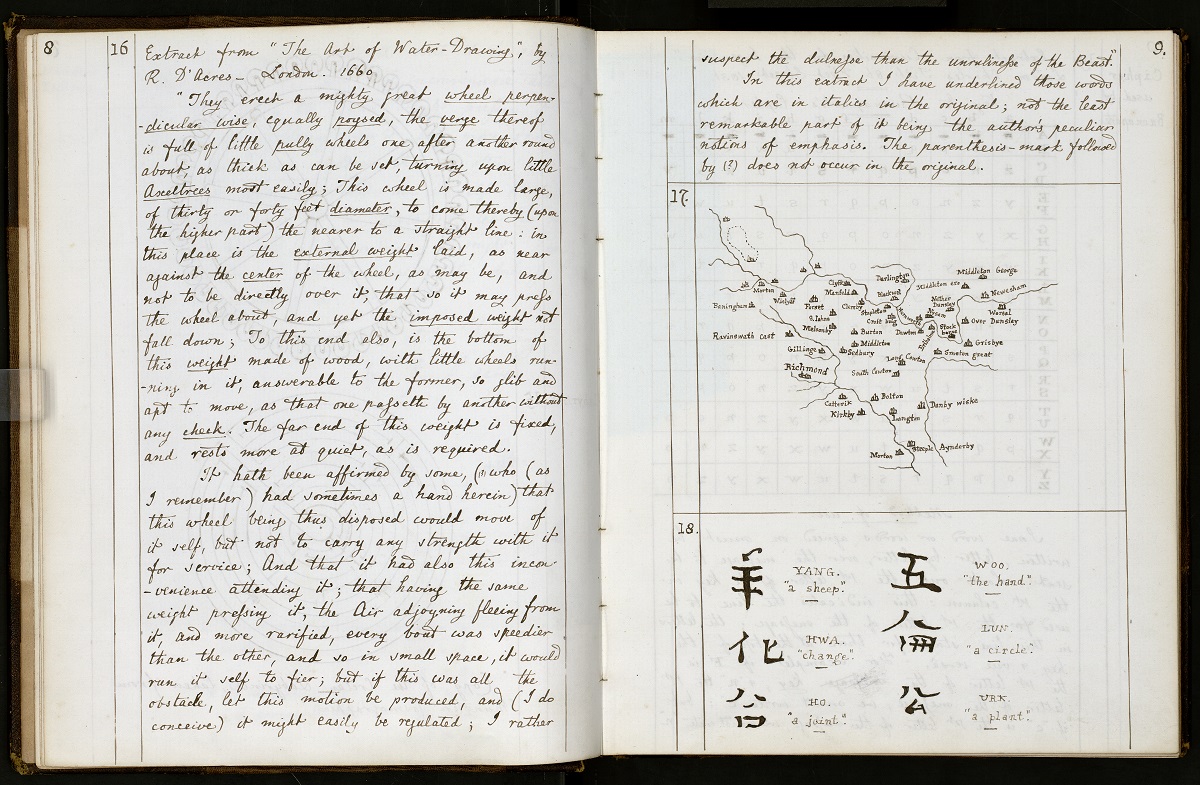 8
16
Extract from "The Art of Water-Drawing", by
R. D'Acres – London. 1660.
"They erect a mighty great wheel perpen-
-dicular wise, equally poysed, the verge thereof
is full of little pully wheels one after another round
about, as thick as can be set, turning upon little
Axeltrees most easily; This wheel is made large,
of thirty or forty feet diameter, to come thereby (upon
the higher part) the nearer to a straight line: in
this place is the external weight laid, as near
against the center of the wheel, as may be, and
not to be directly over it, that so it may press
the wheel about, and yet the imposed weight not
fall down; To this end also, is the bottom of
this weight made of wood, with little wheels run-
-ning in it, answerable to the former, so glib and
apt to move, as that one passeth by another without
any check. The far end of this weight is fixed,
and rests more at quiet, as is required.
It hath been affirmed by some, (?) who (as
I remember) had sometimes a hand herein) that
this wheel being thus disposed would move of
it self, but not to carry any strength with it
for service; And that it had also this incon-
-venience attending it; that having the same
weight pressing it, the Air adjoyning fleeing from
it, and more rarified, every bout was speedier
than the other, and so in small space, it would
run it self to fier; but if this was all the
obstacle, let this motion be produced, and (I do
conceive) it might easily be regulated; I rather
9.
suspect the dulnesse than the unrulinesse of the Beast."
In this extract I have underlined those words
which are in italics in the original; not the least
remarkable part of it being the author's peculiar
notions of emphasis. The parenthesis-mark followed
by (?) does not occur in the original.
17.
Middleton George
Darlington
Middleton one
Cliffe
Newsham
Manfeld
Blackwell
Morton
Nether Dinsley
Barningham
Forset
Clemby
Stapleton
Worsal
S. Iohns
Croft brig
Over Dunsley
Melsonby
Dawton
Stock burne
Ravenswath cast
Barton
Middleton
Grisbye
Gillinge
Sedbury
Smeton great
Long Cowton
Richmond
South Cowton
Catterik
Bolton
Danby wiske
Kirkby
Langton
Steeple Aynderby
Morton
18.
羊 YANG. "a sheep".
五 WOO. "the hand".
化 HWA. "change".
侖 LUN. "a circle".
合 HO. "a joint".
公 URK. "a plant".